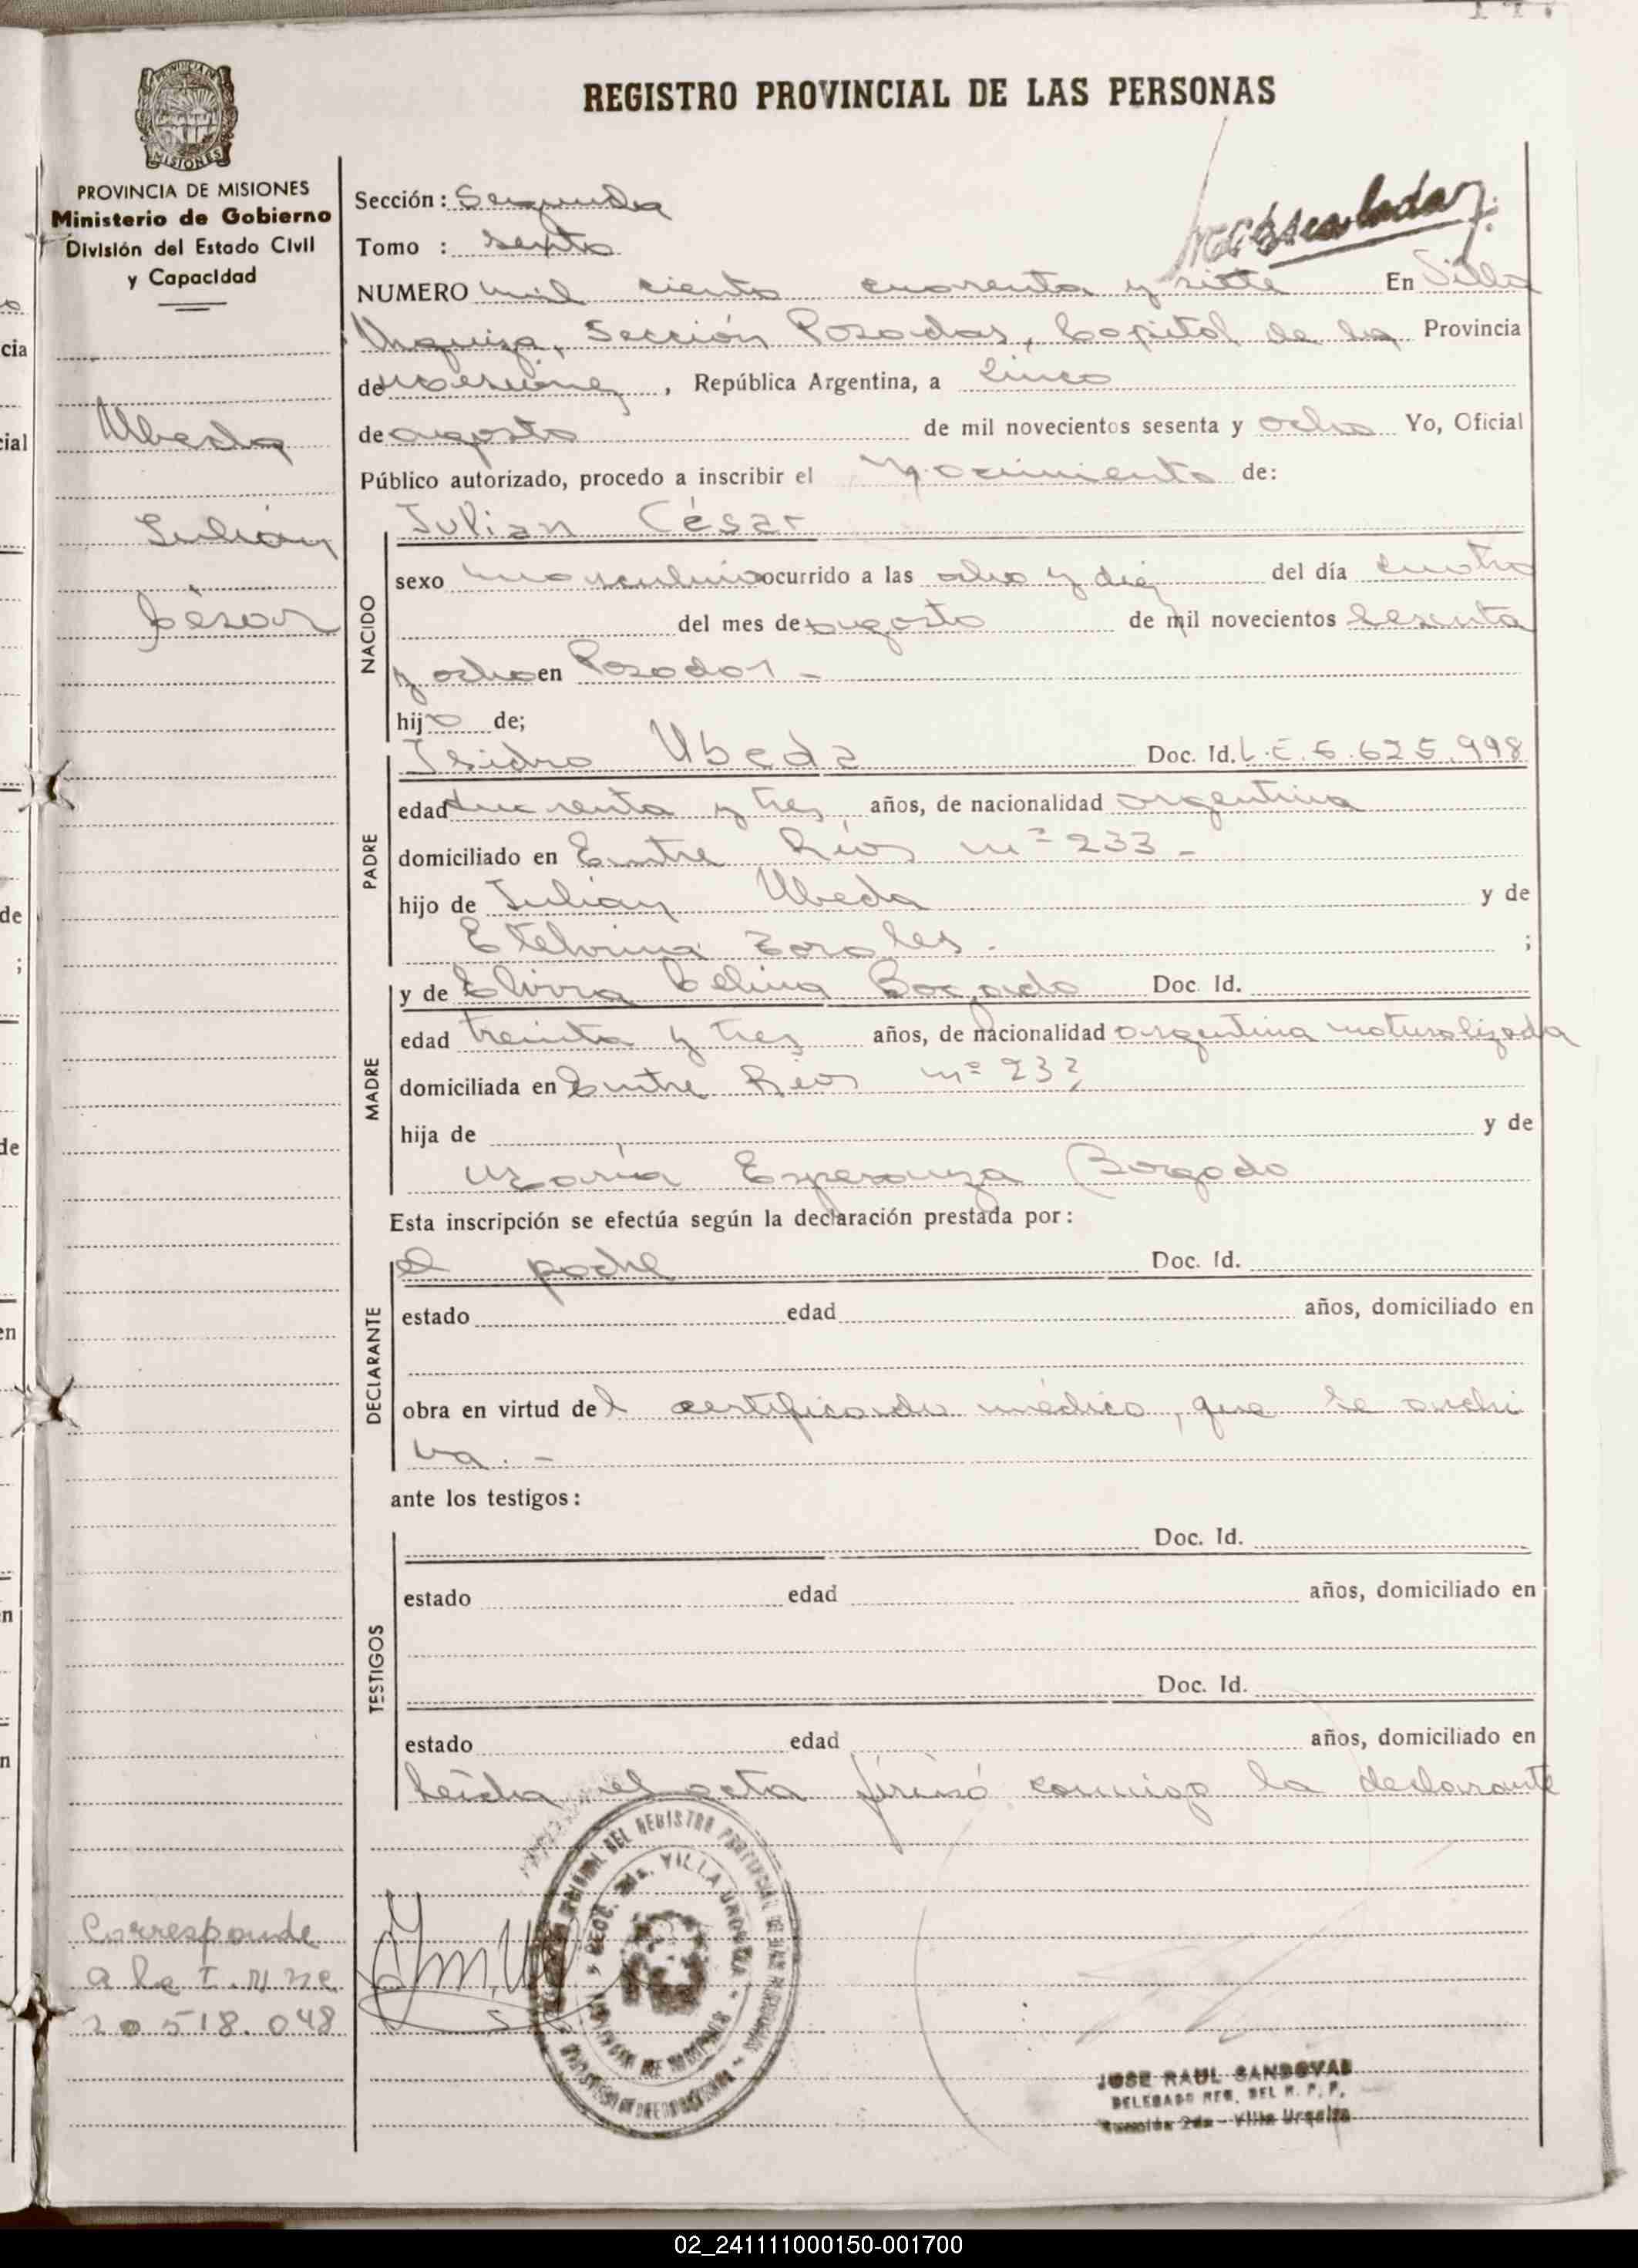 REGISTRO PROVINCIAL DE LAS PERSONAS
MISIONES
PROVINCIA DE MISIONES
Ministerio de Gobierno
División del Estado Civil
y Capacidad
Ubeda
Julián
César
Sección: Segunda
Tomo : sexto
NUMERO mil ciento cuarenta y siete En Villa
Urquiza, Sección Posadas, Capital de la Provincia
de Misiones, República Argentina, a cinco
de agosto de mil novecientos sesenta y ocho Yo, Oficial
Público autorizado, procedo a inscribir el nacimiento de:
NACIDO
Julian César
sexo masculino ocurrido a las ocho y diez del día cuatro
del mes de agosto de mil novecientos sesenta
y ocho en Posadas -
hijo de;
PADRE
Isidro Ubeda Doc. Id. L.E. 5.625.998
edad cuarenta y tres años, de nacionalidad argentina
domiciliado en Entre Ríos nº 233 -
hijo de Julián Ubeda y de
Etelvina Zorales. ;
MADRE
y de Elvira Celina Bogado Doc. Id.
edad treinta y tres años, de nacionalidad argentina naturalizada
domiciliada en Entre Ríos nº 233
hija de y de
María Esperanza Borgado
Esta inscripción se efectúa según la declaración prestada por:
DECLARANTE
el padre Doc. Id.
estado edad años, domiciliado en
obra en virtud del certificado médico, que se archi
va. -
ante los testigos:
TESTIGOS
Doc. Id.
estado edad años, domiciliado en
Doc. Id.
estado edad años, domiciliado en
Leída el acta firmó conmigo la declarante
Corresponde
a la I. Nº
20.518.048
DEL REGISTRO PROVINCIAL DE LAS PERSONAS
SECC. 2da. VILLA URQUIZA
JOSE RAUL SANDOVAL
DELEGADO REG. DEL R. P. P.
Sección 2da - Villa Urquiza
02_241111000150-001700